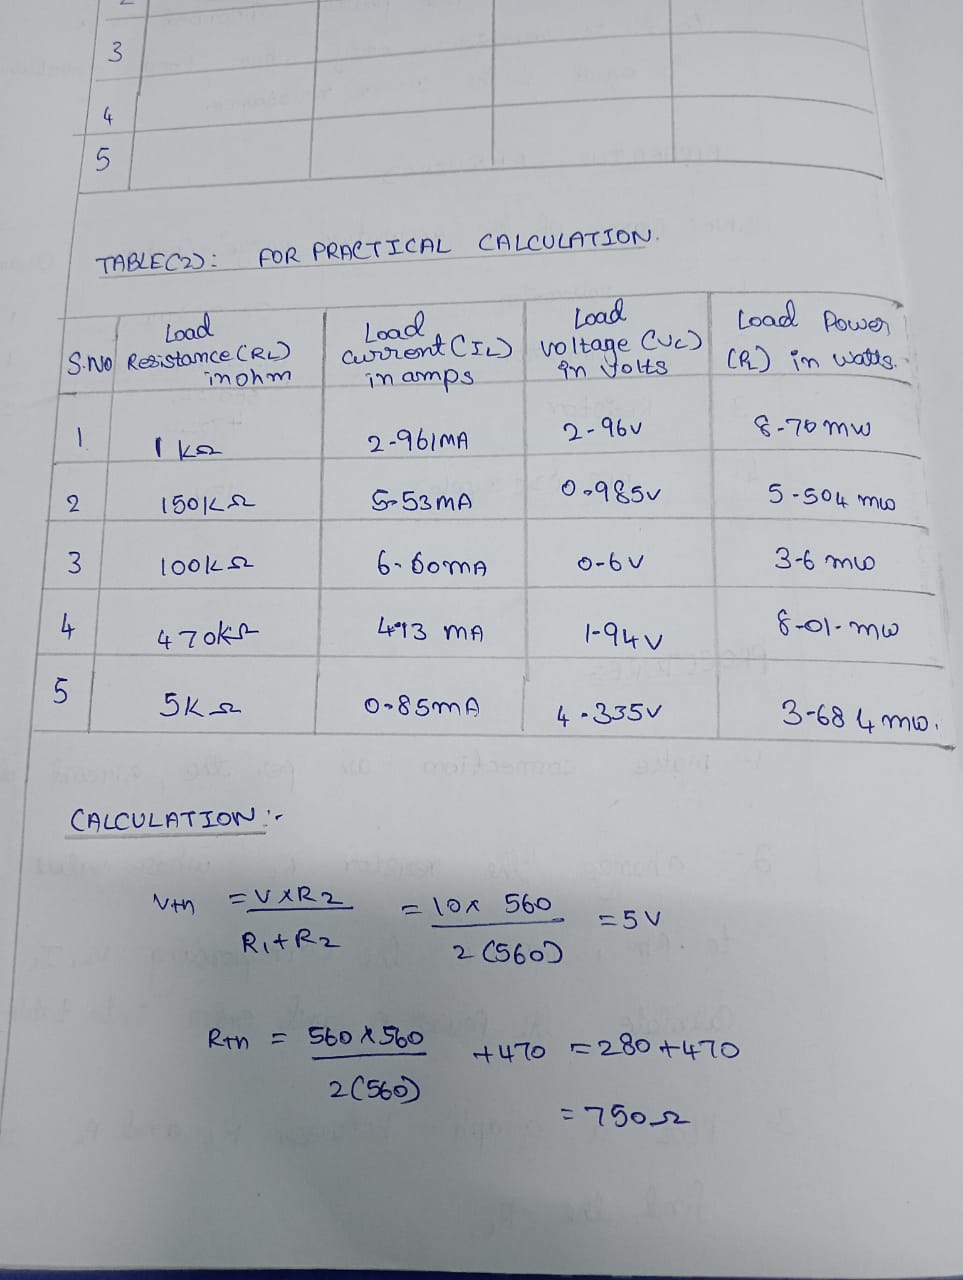 3
4
5
TABLE(2): FOR PRACTICAL CALCULATION.
S.No
Load Resistance (RL) in ohm
Load current (IL) in amps
Load voltage (VL) in volts
Load Power (PL) in watts.
1. 1 kΩ 2-961MA 2-96v 8-76 mw
2 150kΩ 5-53mA 0.985v 5-504 mw
3 100kΩ 6-60mA 0-6v 3-6 mw
4 470kΩ mA 1-94v 8-01-mw
5 5KΩ 0-85mA 4.335v 3-684 mw.
CALCULATION :-
Vth = V×R2 / R1+R2 = 10× 560 / 2(560) = 5V
Rth = 560×560 / 2(560) +470 = 280+470
= 750Ω